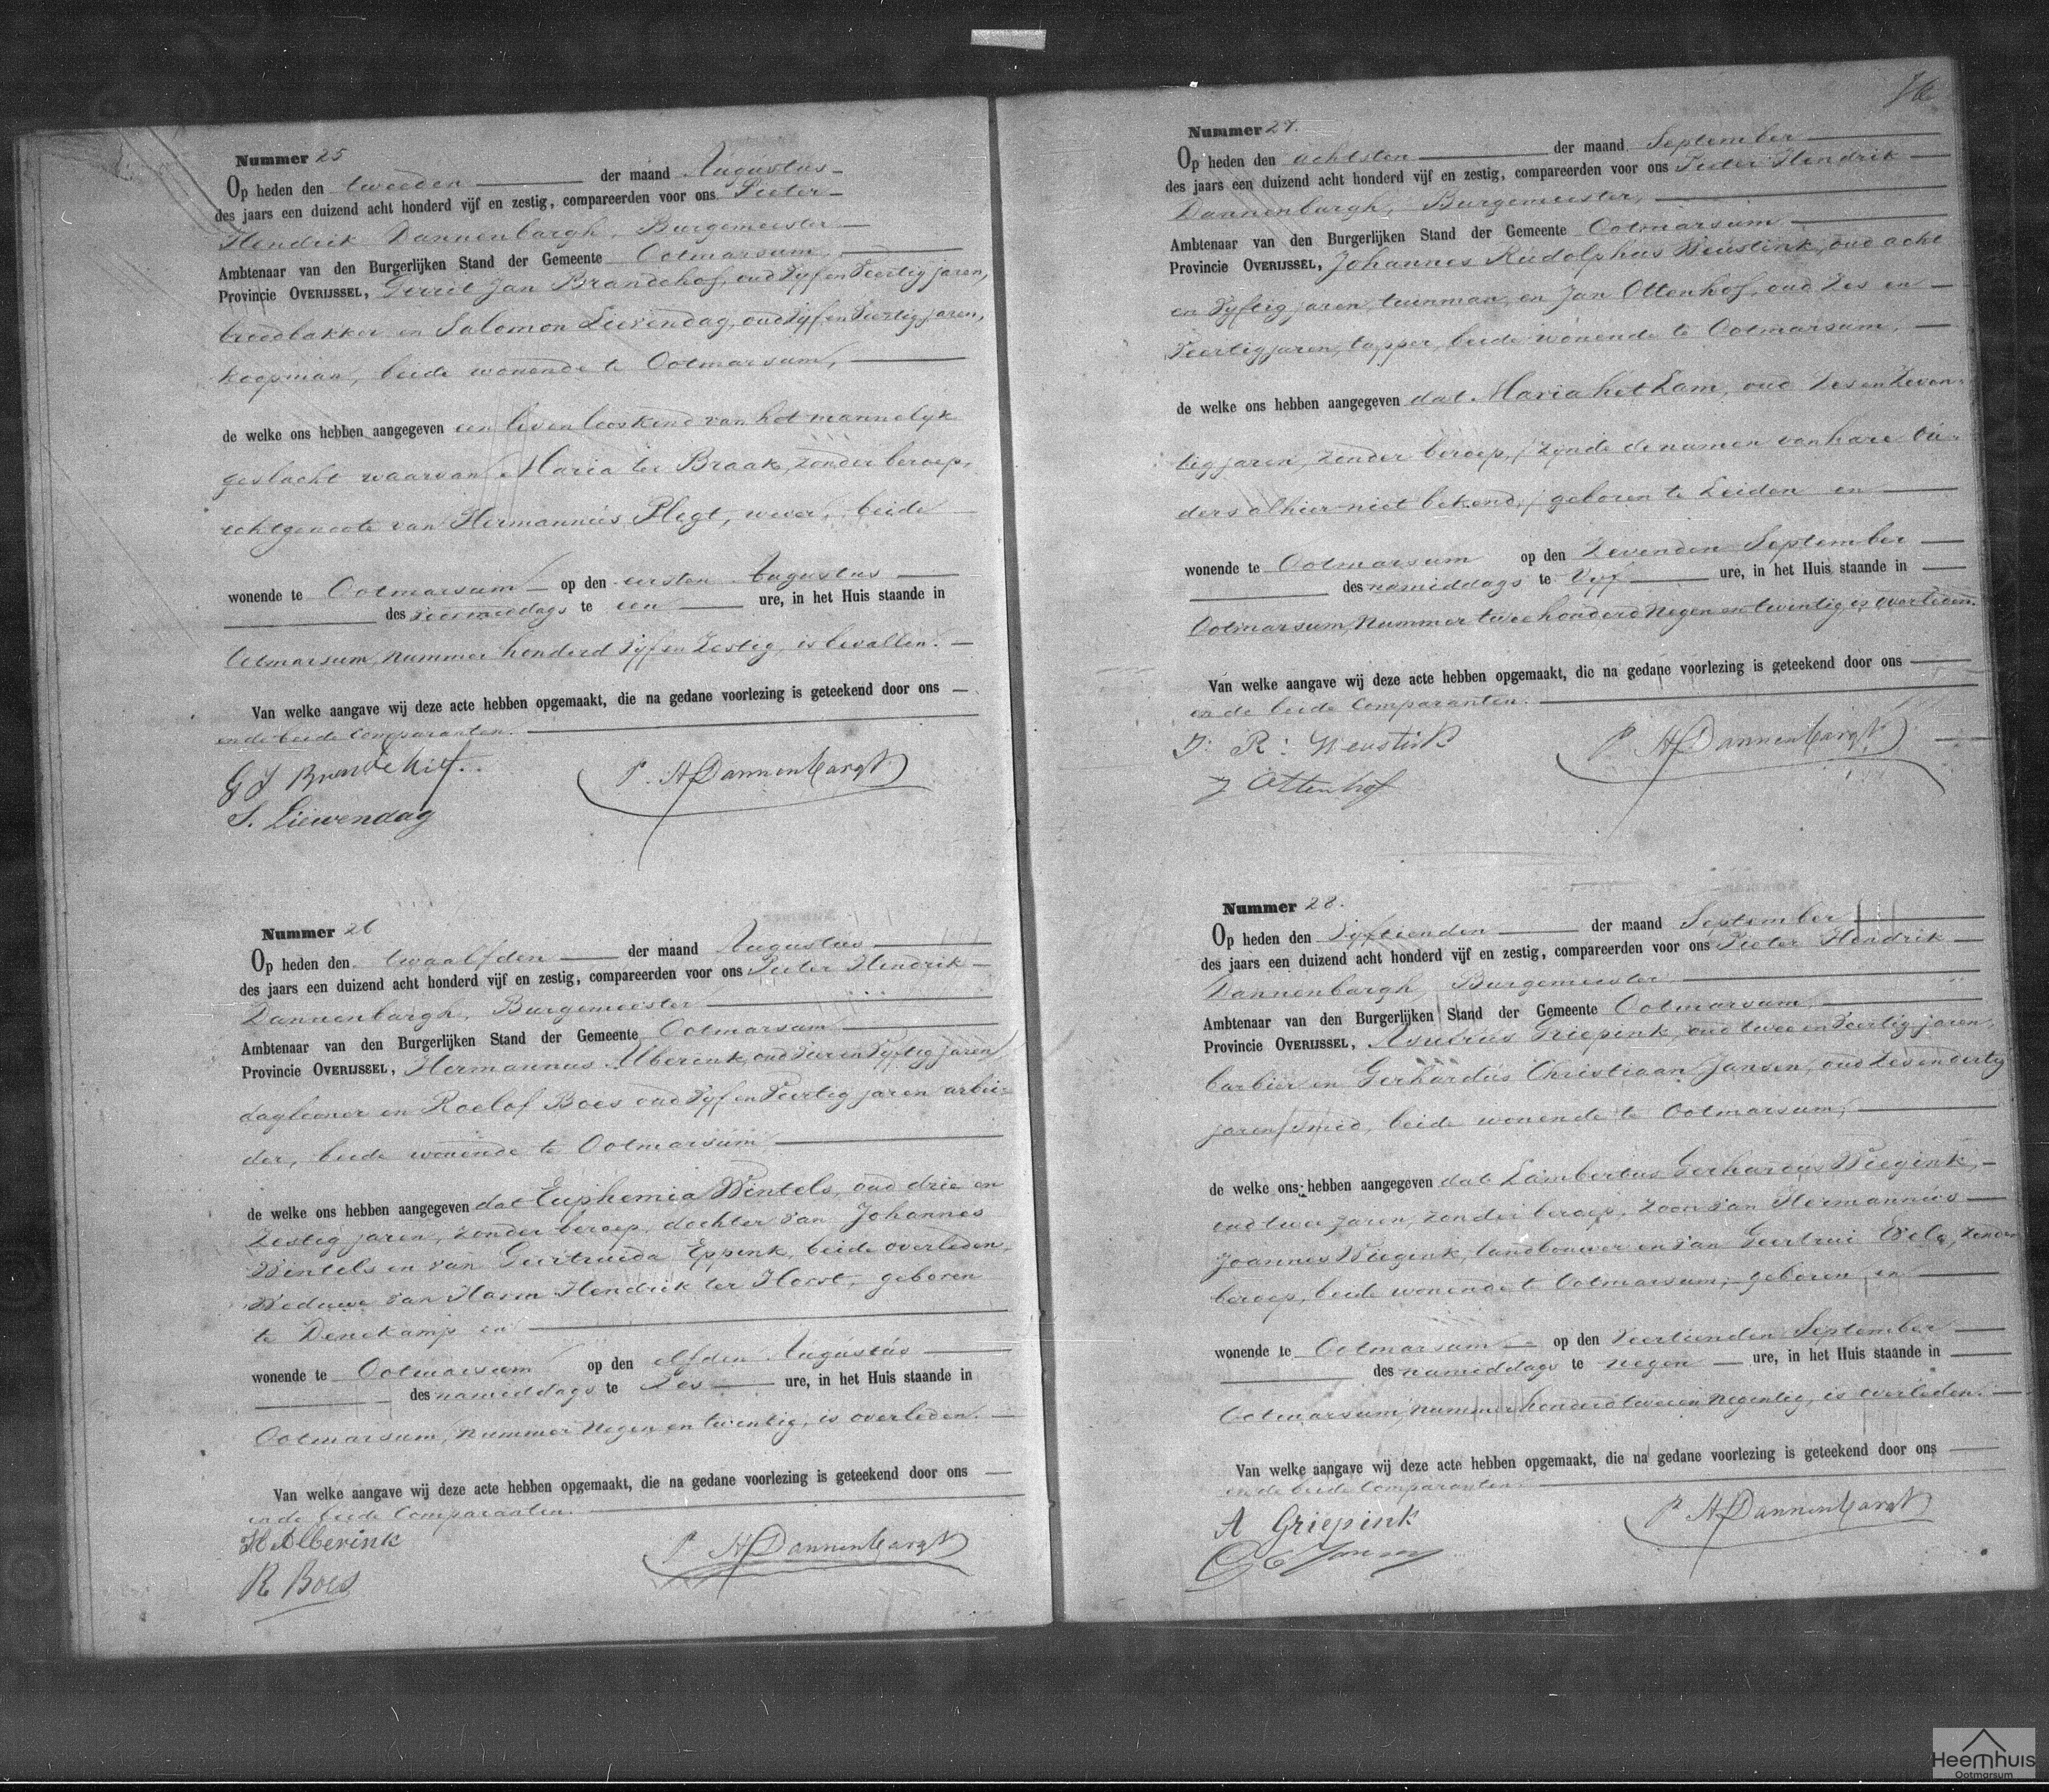 Nummer 25
Op heden den tweeden der maand Augustus
des jaars een duizend acht honderd vijf en zestig, compareerden voor ons Pieter
Hendrik Dannenbargh, Burgemeester
Ambtenaar van den Burgerlijken Stand der Gemeente Ootmarsum,
Provincie OVERIJSSEL, Gerrit Jan Brandehof, oud Vyf en Veertig jaren,
broodbakker en Salomon Lievendag, oud Vyf en Veertig jaren,
koopman, beide wonende te Ootmarsum,
de welke ons hebben aangegeven een levenloos kind van het mannelyk
geslacht waarvan Maria ter Braak, zonder beroep,
echtgenoote van Hermannus Plegt, wever, beide
wonende te Ootmarsum op den eersten Augustus
des voormiddags te een ure, in het Huis staande in
Ootmarsum, nummer honderd Vyf en Zestig, is bevallen.
Van welke aangave wij deze acte hebben opgemaakt, die na gedane voorlezing is geteekend door ons
en de beide Comparanten.
G J Brandehof
P. H Dannenbargh
S. Liewendag
Nummer 26
Op heden den twaalfden der maand Augustus
des jaars een duizend acht honderd vijf en zestig, compareerden voor ons Pieter Hendrik
Dannenbargh, Burgemeester
Ambtenaar van den Burgerlijken Stand der Gemeente Ootmarsum
Provincie OVERIJSSEL, Hermannus Alberink oud Vier en Vyftig jaren
daglooner en Roelof Boes oud Vyf en Veertig jaren arbei-
der, beide wonende te Ootmarsum
de welke ons hebben aangegeven dat Euphemia Wintels, oud drie en
Zestig jaren, zonder beroep, dochter van Johannes
Wintels en van Geertruida Eppink, beide overleden,
Weduwe van Harm Hendrik ter Horst, geboren
te Denekamp en
wonende te Ootmarsum op den elfden Augustus
des namiddags te Zes ure, in het Huis staande in
Ootmarsum, nummer Negen en twintig, is overleden.
Van welke aangave wij deze acte hebben opgemaakt, die na gedane voorlezing is geteekend door ons
en de beide Comparanten.
H Alberink
P H Dannenbargh
R Boes
Nummer 27.
Op heden den achtsten der maand September
des jaars een duizend acht honderd vijf en zestig, compareerden voor ons Pieter Hendrik
Dannenbargh, Burgemeester,
Ambtenaar van den Burgerlijken Stand der Gemeente Ootmarsum
Provincie OVERIJSSEL, Johannes Rudolphus Weustink, oud acht
en Vyftig jaren, tuinman, en Jan Ottenhof, oud Zes en
Veertig jaren, tapper, beide wonende te Ootmarsum,
de welke ons hebben aangegeven dat Maria het Lam, oud Zes en Zeven-
tig jaren, zonder beroep, / zynde de namen van hare Ou-
ders alhier niet bekend, / geboren te Leiden en
wonende te Ootmarsum op den Zevenden September
des namiddags te Vyf ure, in het Huis staande in
Ootmarsum, Nummer twee honderd Negen en twintig is overleden.
Van welke aangave wij deze acte hebben opgemaakt, die na gedane voorlezing is geteekend door ons
en de beide Comparanten.
J: R: Weustink
P H Dannenbargh
J Ottenhof
Nummer 28.
Op heden den Vyftienden der maand September
des jaars een duizend acht honderd vijf en zestig, compareerden voor ons Pieter Hendrik
Dannenbargh Burgemeester
Ambtenaar van den Burgerlijken Stand der Gemeente Ootmarsum
Provincie OVERIJSSEL, Asuerus Griepink, oud twee en Veertig jaren
barbier en Gerhardus Christiaan Jansen, oud Zes en dertig
jaren, smid, beide wonende te Ootmarsum,
de welke ons hebben aangegeven dat Lambertus Gerhardus Wiegink,
oud twee jaren, zonder beroep, Zoon van Hermannus
Joannes Wiegink, landbouwer en van Geertrui Wels, zonder
beroep, beide wonende te Ootmarsum, geboren en
wonende te Ootmarsum op den Veertienden September
des namiddags te negen ure, in het Huis staande in
Ootmarsum, nummer honderd twee en Negentig, is overleden.
Van welke aangave wij deze acte hebben opgemaakt, die na gedane voorlezing is geteekend door ons
en de beide Comparanten.
A Griepink
P H Dannenbargh
G C Jansen
Heemhuis
Ootmarsum